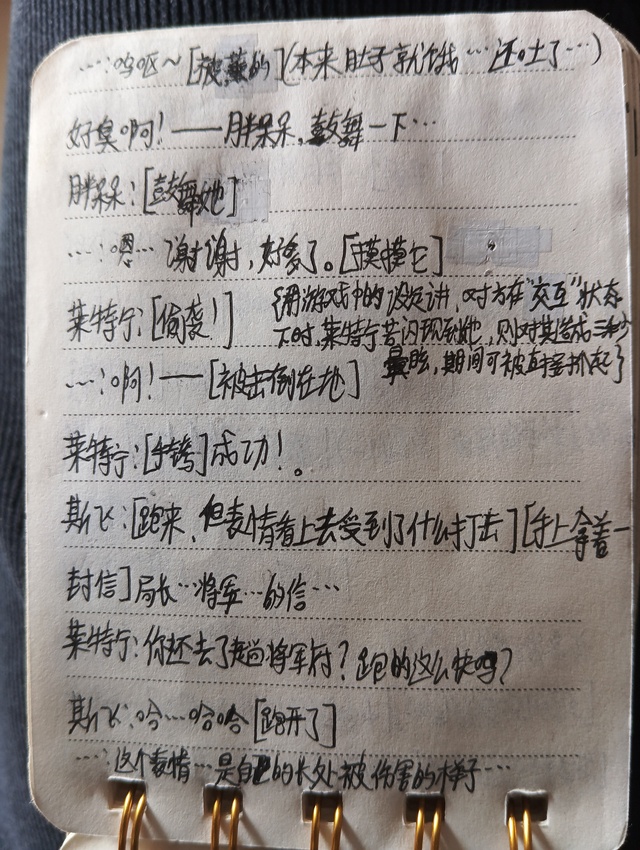 …：呜呕～[被薰的](本来肚子就饿…还吐了…)
好臭啊！——胖呆呆，鼓舞一下…
胖呆呆：[鼓舞她]
…：嗯…谢谢，好多了。[摸摸它]
莱特宁：[偷袭！]
(用游戏中的设定讲，对方在“交互”状态
下时，莱特宁若闪现到她，则对其造成三秒
晕眩，期间可被直接抓起了
…：啊！——[被击倒在地]
莱特宁：[手铐]成功！。
斯飞：[跑来，但表情看上去受到了什么打击][手上拿着一
封信]局长…将军…的信…
莱特宁：你还去了趟将军府？跑的这么快吗？
斯飞：哈…哈哈[跑开了]
…：这个表情…是自己的长处被伤害的样子…